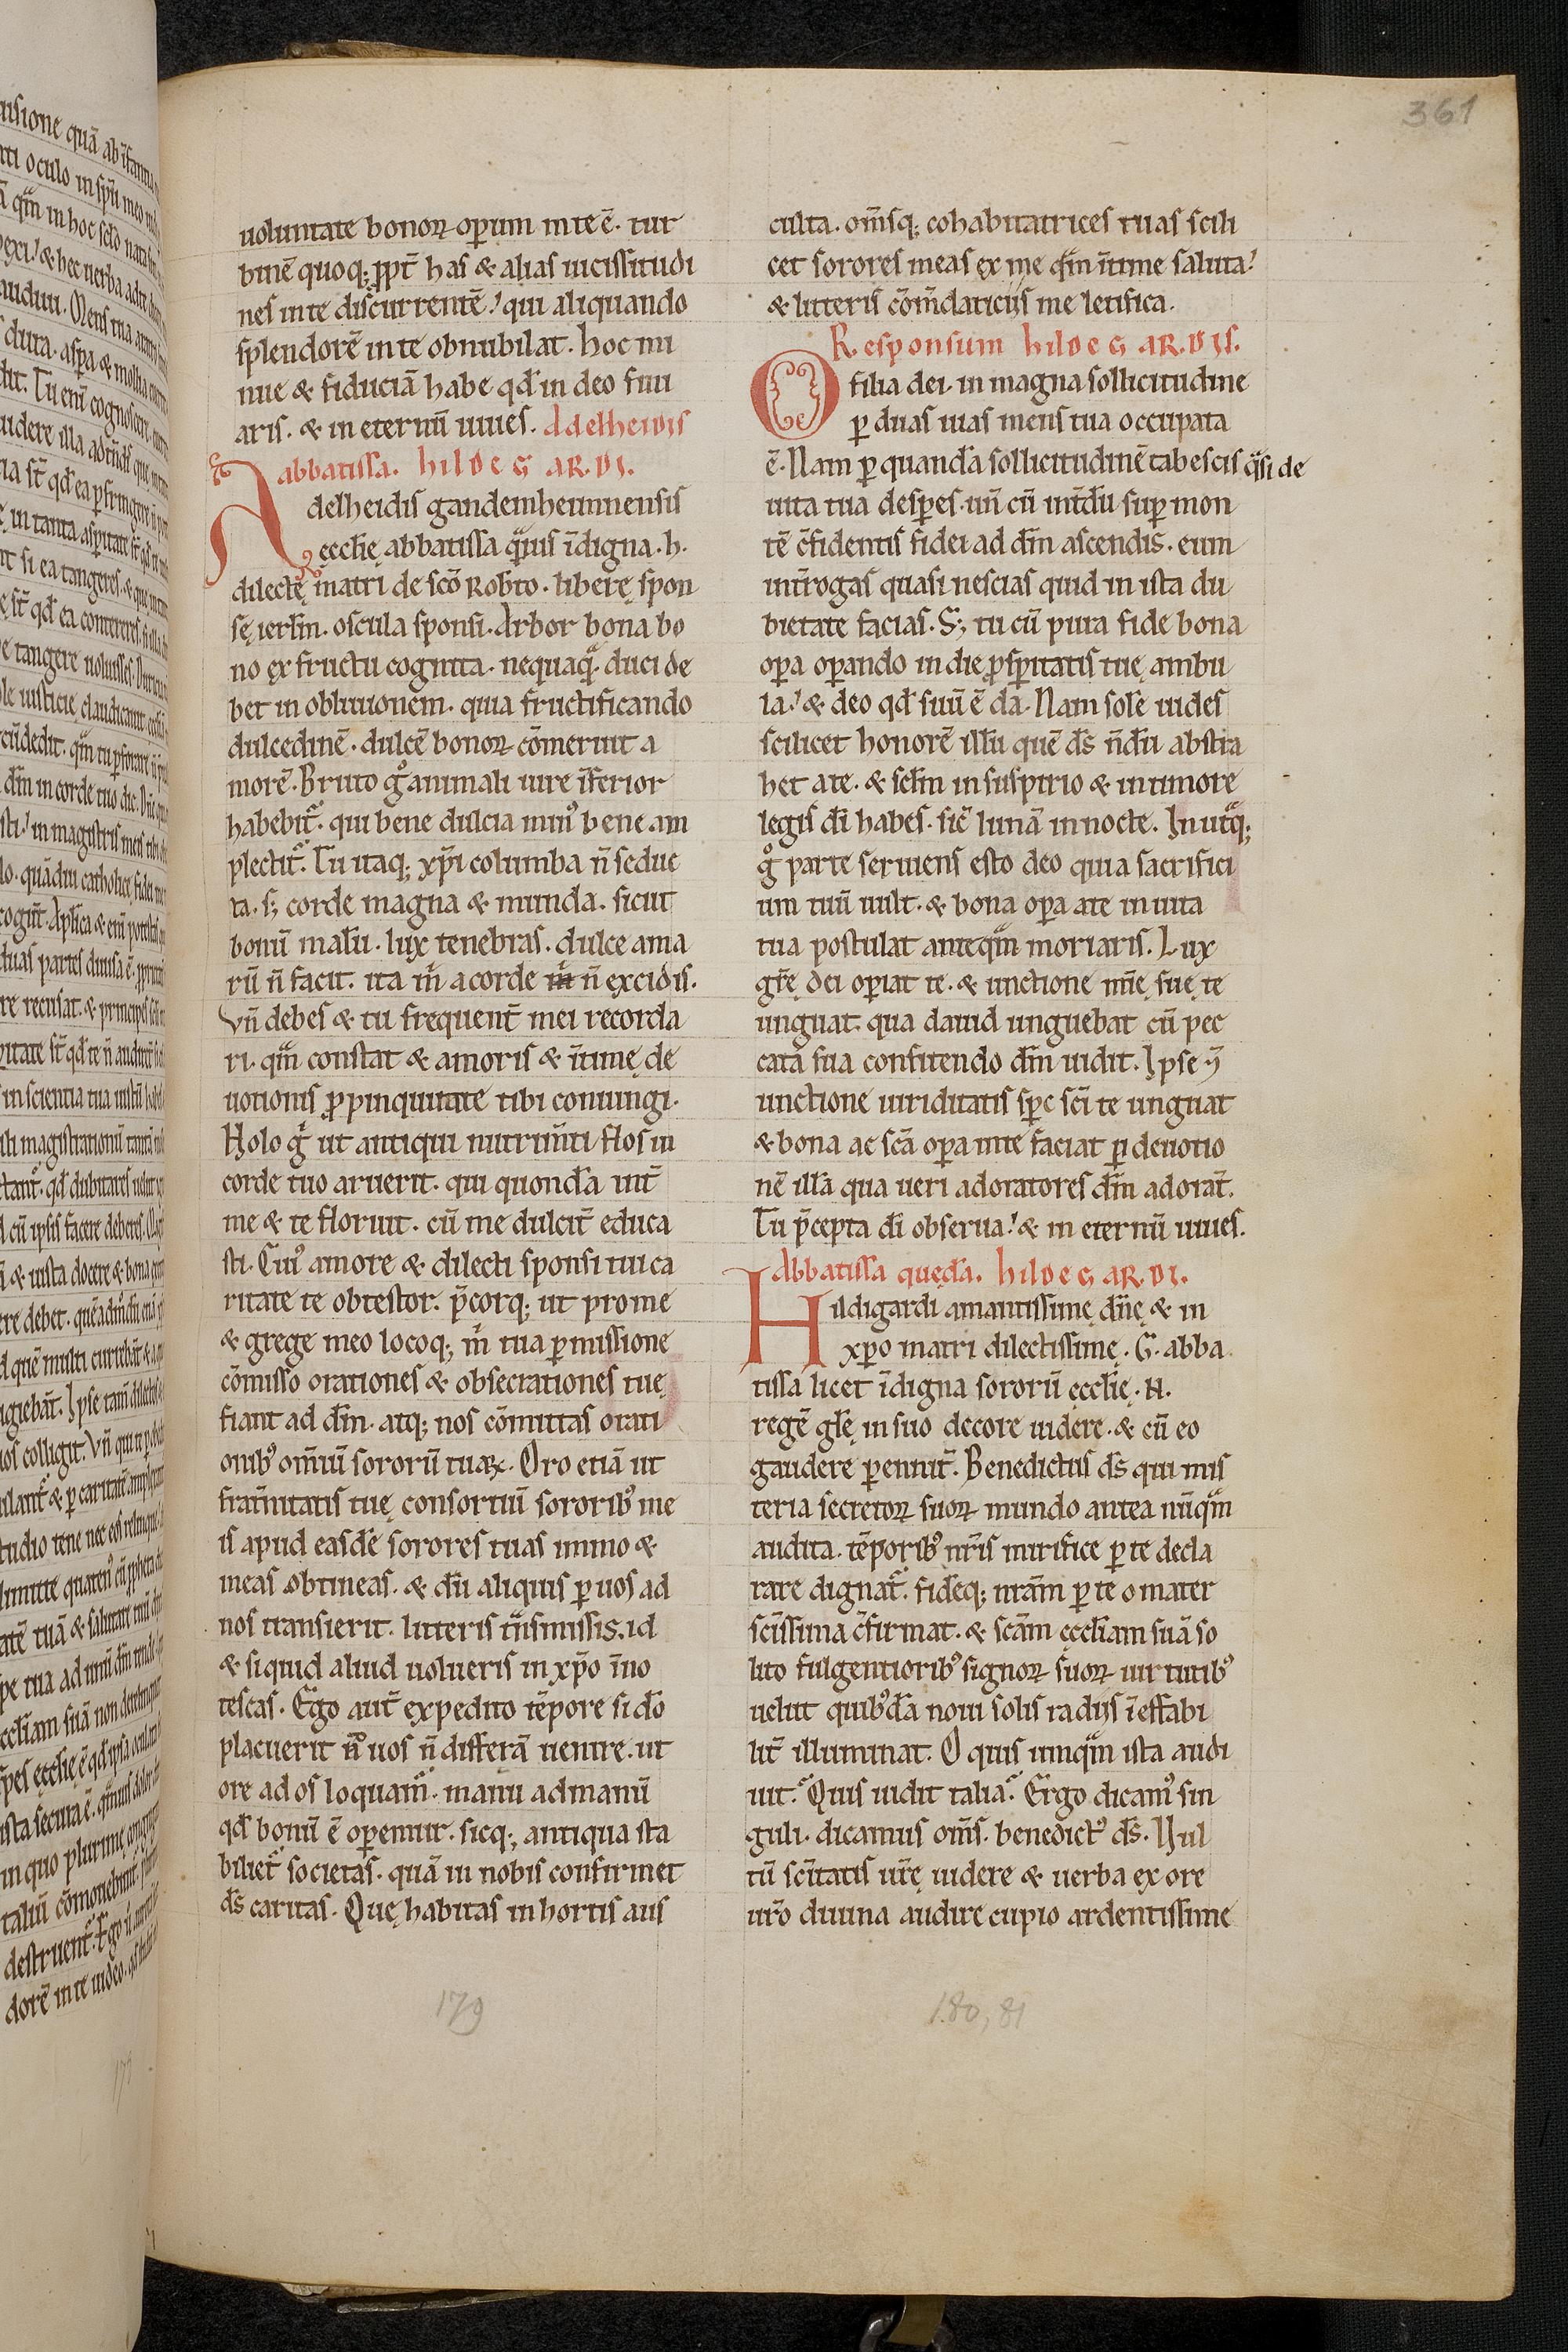 361
uoluntate bonoꝝ oꝑum in te ē. tur
binē quoq; ꝓpt̄ has & alias uicissitudi
nes in te discurrentē! qui aliquando
splendorē in te obnubilat. hoc mi
nue & fiduciā habe qđ in deo frui
aris. & in eternū uiues. Adelheidis
abbatissa. hildegardi.
Adelheidis gandemheimnensis
ęccłię abbatissa qͣmuis īdigna. h.
dilectę matri de sc̄o Rob̄to. liberę spon
sę ierłm. oscula sponsi. Arbor bona bo
no ex fructu cognita. nequaqͣ. duci de
bet in obliuionem. quia fructificando
dulcedinē. dulcē bonoꝝ cōmeruit a
morē. Bruto gͦ animali iure īferior
habebit᷑. qui bene dulcia minꝰ bene am
plectit᷑. Tu itaq; xp̄i columba n̄ seduc
ta. s; corde magna & munda. sicut
bonū malū. lux tenebras. dulce ama
rū n̄ facit. ita m̄ a corde m̄ n̄ excidis.
Vn̄ debes & tu frequent̄ mei recorda
ri. qm̄ constat & amoris & ītimę de
uotionis ꝓpinquitate tibi coniungi.
Nolo gͦ ut antiqui nutrim̄ti flos in
corde tuo aruerit. qui quondā int̄
me & te floruit. cū me dulcit̄ educa
sti. Cuiꝰ amore & dilecti sponsi tui ca
ritate te obtestor. p̄corq; ut pro me
& grege meo locoq; m̄ tua ꝑmissione
cōmisso orationes & obsecrationes tuę
fiant ad dn̄m. atq; nos cōmittas orati
onibꝰ om̄iū sororū tuaꝝ. Oro etiā ut
frat̄nitatis tuę consortiū sororibꝰ me
is apud easdē sorores tuas immo &
meas obtineas. & dū aliquis ꝑ uos ad
nos transierit. litteris tͣnsmissis. id
& siquid aliud uolueris in xp̄o īno
tescas. Ego aut̄ expedito tēpore si dō
placuerit uos n̄ differā uenire. ut
ore ad os loquam᷑. manu ad manū
qđ bonū ē oꝑemur. sicq; antiqua sta
biliet᷑ societas. quā in nobis confirmet
ds̄ caritas. Quę habitas in hortis aus
culta. om̄sq; cohabitatrices tuas scili
cet sorores meas ex me qͣm ītime saluta!
& litteris cōm̄daticiis me letifica.
Responsum hildegardis.
O filia dei. in magna sollicitudine
ꝑ duas uias mens tua occupata
ē. Nam ꝑ quandā sollicitudinē tabescis qͣsi de
uita tua desꝑes. un̄ cū int̄dū suꝑ mon
tē c̄fidentis fidei ad dn̄m ascendis. eum
int̄rogas quasi nescias quid in ista du
bietate facias. S; tu cū pura fide bona
oꝑa oꝑando in die ꝓsꝑitatis tuę ambu
la! & deo qđ suū ē da. Nam solē uides
scilicet honorē illū quē ds̄ n̄dū abstra
het a te. & sc̄łm in suspirio & in timore
legis dī habes. sic̄ lunā in nocte. In utͣq;
gͦ parte seruiens esto deo quia sacrifici
um tuū uult. & bona oꝑa a te in uita
tua postulat anteqͣm moriaris. Lux
gr̄ę dei oꝑiat te. & unctione mīę suę te
unguat. qua dauid unguebat cū pec
cata sua confitendo dn̄m uidit. Ipse ⁊̄
unctione uiriditatis sp̄c sc̄i te unguat
& bona ac sc̄a oꝑa in te faciat ꝑ deuotio
nē illā qua ueri adoratores dn̄m adorat̄.
Tu p̄cepta dī obserua! & in eternū uiues.
Abbatissa quędā. hildegardi.
Hildigardi amantissimę dn̄ę & in
xp̄o matri dilectissimę. G. abba
tissa licet īdigna sororū ęccłię. N.
regē głę in suo decore uidere. & cū eo
gaudere ꝑennit̄. Benedictus ds̄ qui mis
teria secretoꝝ suoꝝ mundo antea nūqͣm
audita. tēporibꝰ nr̄is mirifice ꝑ te decla
rare dignat᷑. fideq; nr̄am ꝑ te o mater
sc̄issima c̄firmat. & sc̄am ęccłiam suā so
lito fulgentioribꝰ signoꝝ suoꝝ uirtutibꝰ
uelut quibꝰdā noui solis radiis īeffabi
lit̄ illuminat. O quis umqͣm ista audi
uit? Quis uidit talia? Ergo dicamꝰ sin
guli. dicamus om̄s. benedictꝰ ds̄. Uul
tū sc̄itatis ur̄ę uidere & uerba ex ore
ur̄o diuina audire cupio ardentissime
179
180, 81